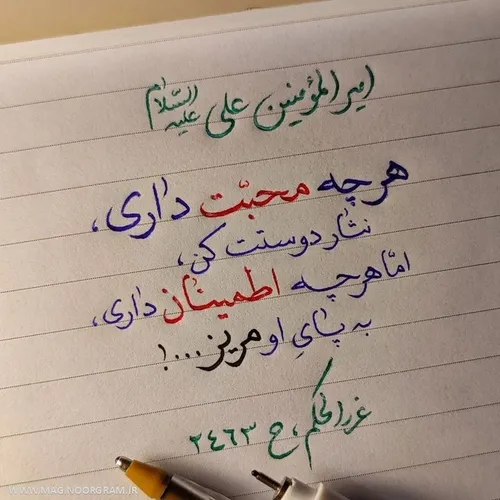 امیرالمؤمنین علی علیه السّلام
هرچه محبّت داری،
نثار دوستت کن،
امّا هرچه اطمینان داری،
به پایِ او مریز...!
غررالحکم، ح ٢٤٦٣
WWW.MAG.NOORGRAM.IR